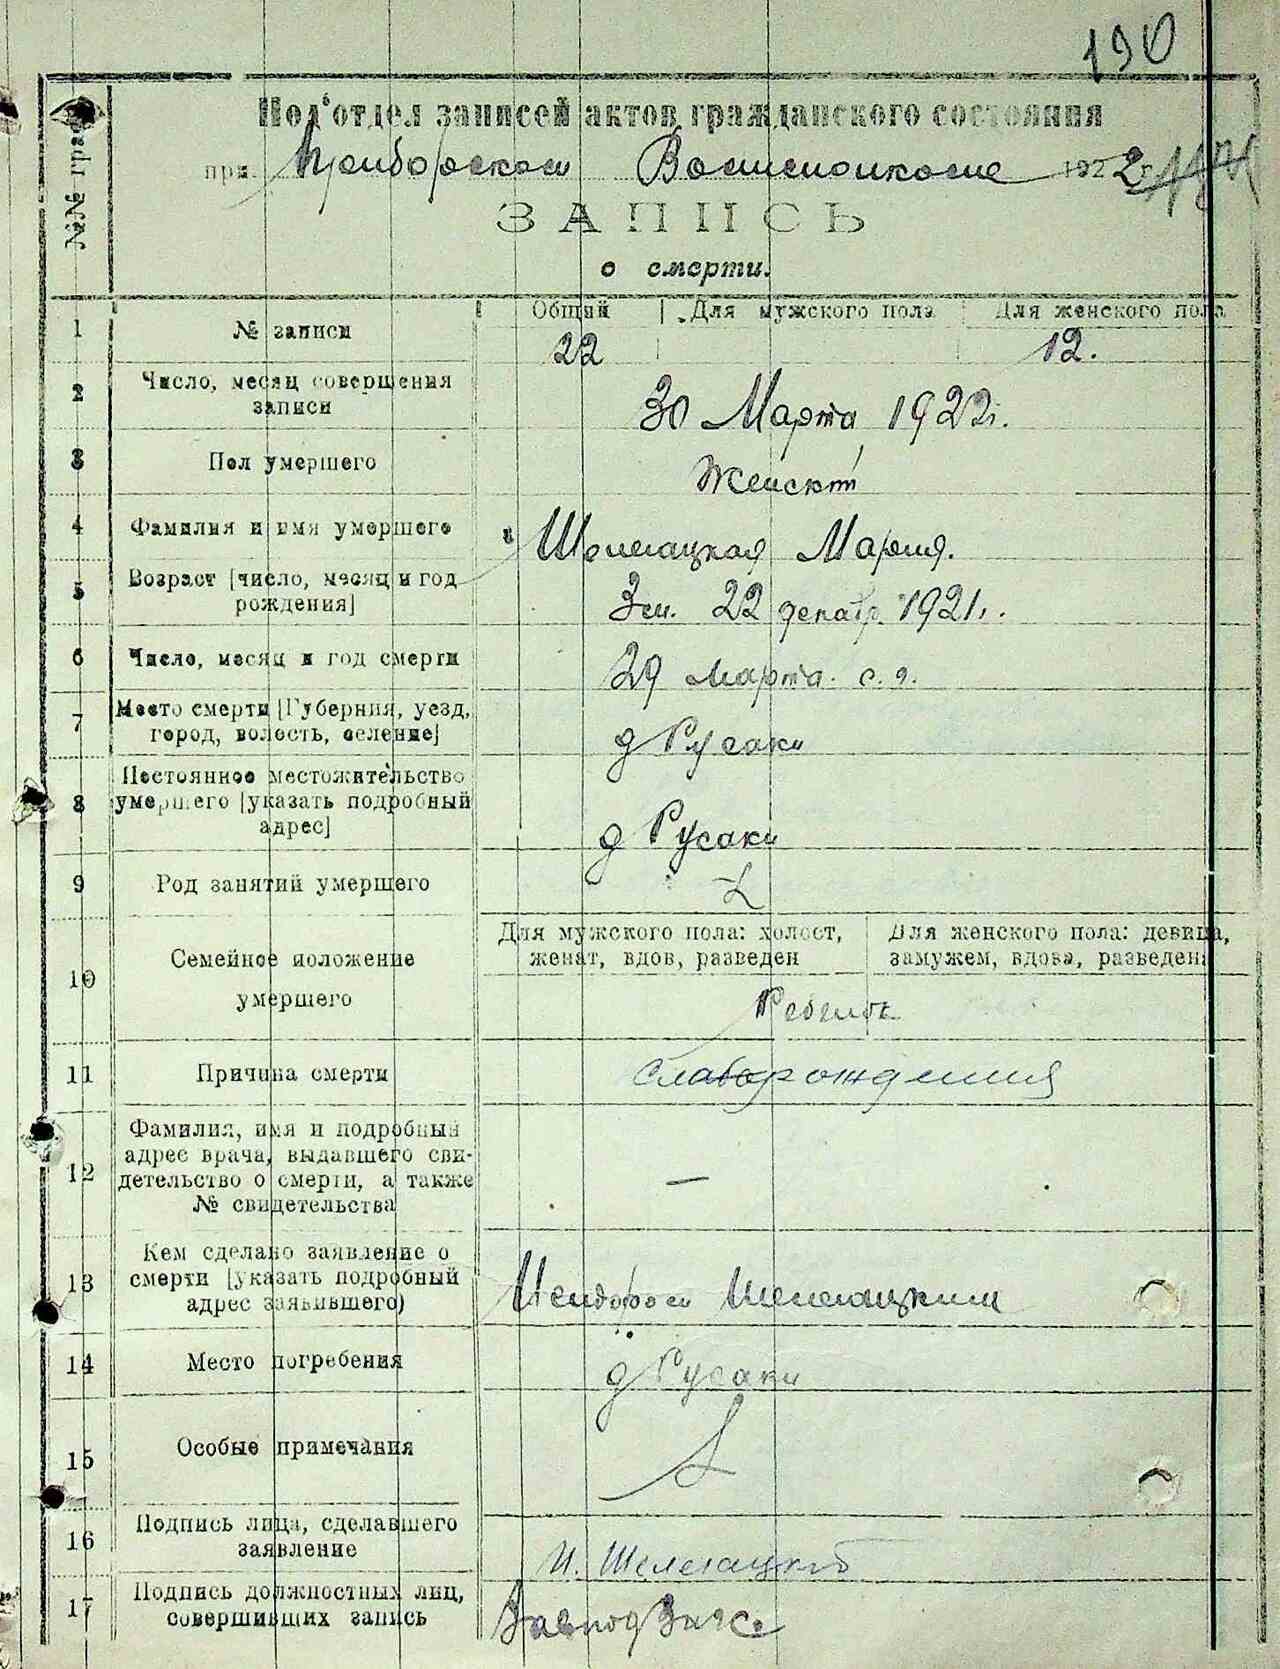 190
Подотдел записей актов гражданского состояния
при Волисполкоме 1922 г.
№№ граф
ЗАПИСЬ
о смерти.
1 № записи
Общий Для мужского пола Для женского пола
22 12.
2 Число, месяц совершения
записи
30 Марта 1922 г.
3 Пол умершего
Женский
4 Фамилия и имя умершего
Шелегацкая Мария.
5 Возраст [число, месяц и год
рождения]
3 м. 22 декабр. 1921 г.
6 Число, месяц и год смерти
29 марта с. г.
7 Место смерти [Губерния, уезд,
город, волость, селение]
д Русаки
8 Постоянное местожительство
умершего [указать подробный
адрес]
д Русаки
9 Род занятий умершего
10 Семейное положение
умершего
Для мужского пола: холост,
женат, вдов, разведен
Для женского пола: девица,
замужем, вдова, разведена
Ребенок
11 Причина смерти
слаборождения
12 Фамилия, имя и подробный
адрес врача, выдавшего сви-
детельство о смерти, а также
№ свидетельства
—
13 Кем сделано заявление о
смерти [указать подробный
адрес заявившего)
Исидором Шелегацким
14 Место погребения
д Русаки
15 Особые примечания
16 Подпись лица, сделавшего
заявление
И. Шелегацкий
17 Подпись должностных лиц,
совершивших запись